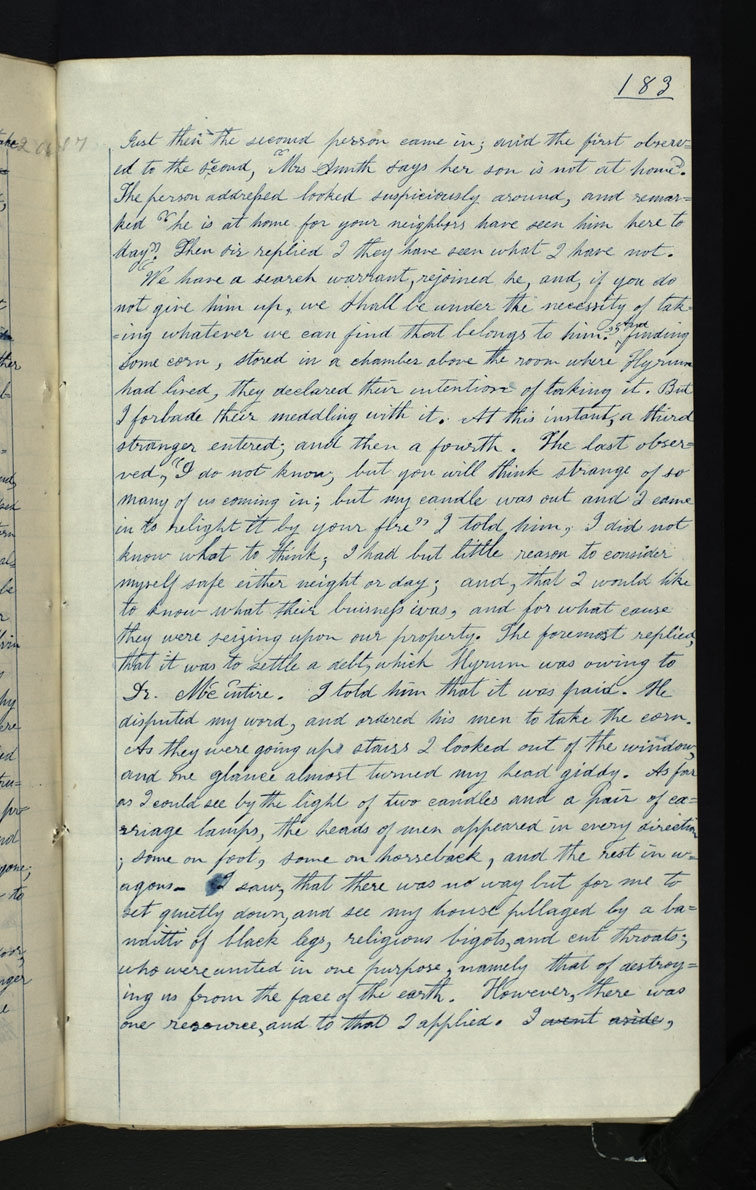 183
Just then the second person came in; and the first observ=
ed to the second, "Mrs Smith says her son is not at home".
The person addressed looked suspiciously around, and remar-
ked "he is at home for your neighbors have seen him here to
day". Then sir replied I they have seen what I have not.
We have a search warrant, rejoined he, and, if you do
not give him up, we shall be under the necessity of tak-
=ing whatever we can find that belongs to him." and finding
some corn, stored in a chamber above the room where Hyrum
had lived, they declared their intention of taking it. But
I forbade their meddling with it. At this instant, a third
stranger entered; and then a fourth. The last obser=
ved, "I do not know, but you will think strange of so
many of us coming in; but my candle was out and I came
in to relight it by your fire" I told him, I did not
know what to think; I had but little reason to consider
myself safe either neight or day; and, that I would like
to know what their buisness was, and for what cause
they were seizing upon our property. The foremost replied,
that it was to settle a debt, which Hyrum was owing to
Dr. McIntire. I told him that it was paid. He
disputed my word, and ordered his men to take the corn.
As they were going up stairs I looked out of the window,
and one glance almost turned my head giddy. As far
as I could see by the light of two candles and a pair of ca=
rriage lamps, the heads of men appeared in every direction
; some on foot, some on horseback, and the rest in w-
agons- I saw, that there was no way but for me to
set quietly down, and see my house pillaged by a ba=
nditti of black legs, religious bigots, and cut throats;
who were united in one purpose, namely that of destroy=
ing us from the face of the earth. However, there was
one resource, and to that I applied. I went aside,